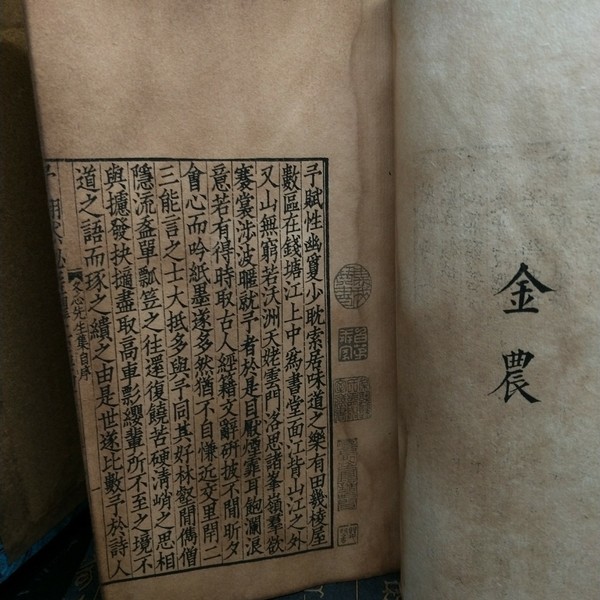 金農
予賦性幽夐少耽索居味道之樂有田幾棱屋
數區在錢塘江上中爲書堂面江背山江之外
又山無窮若沃洲天姥雲門洛思諸峯嶺羣欲
褰裳涉波暱就予者於是目厭煙霏耳飽瀾浪
意若有得時取古人經籍文辭研披不閒昕夕
會心而吟紙墨遂多然猶不自慊近交里閈二
三能言之士大抵多與予同其好林壑閒儁僧
隱流盋單瓢笠之往還復饒苦硬清峭之思相
與攄發抉擿盡取高車影纓輩所不至之境不
道之語而琢之繢之由是世遂比數予於詩人
冬心先生集自序